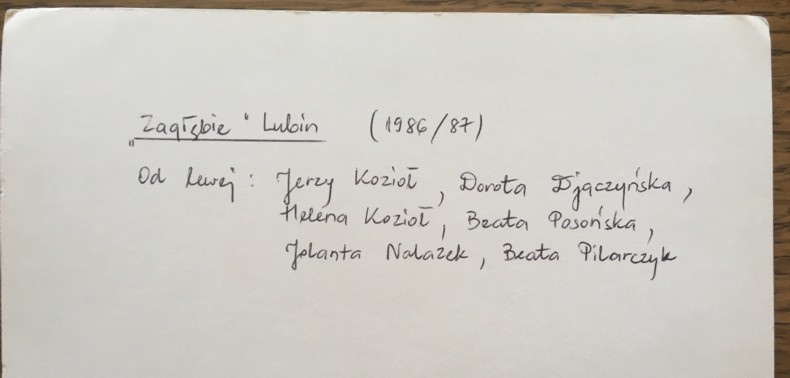 "Zagłębie" Lubin (1986/87)
Od lewej: Jerzy Kozioł, Dorota Djączyńska,
Helena Kozioł, Beata Posońska,
Jolanta Nalazek, Beata Pilarczyk